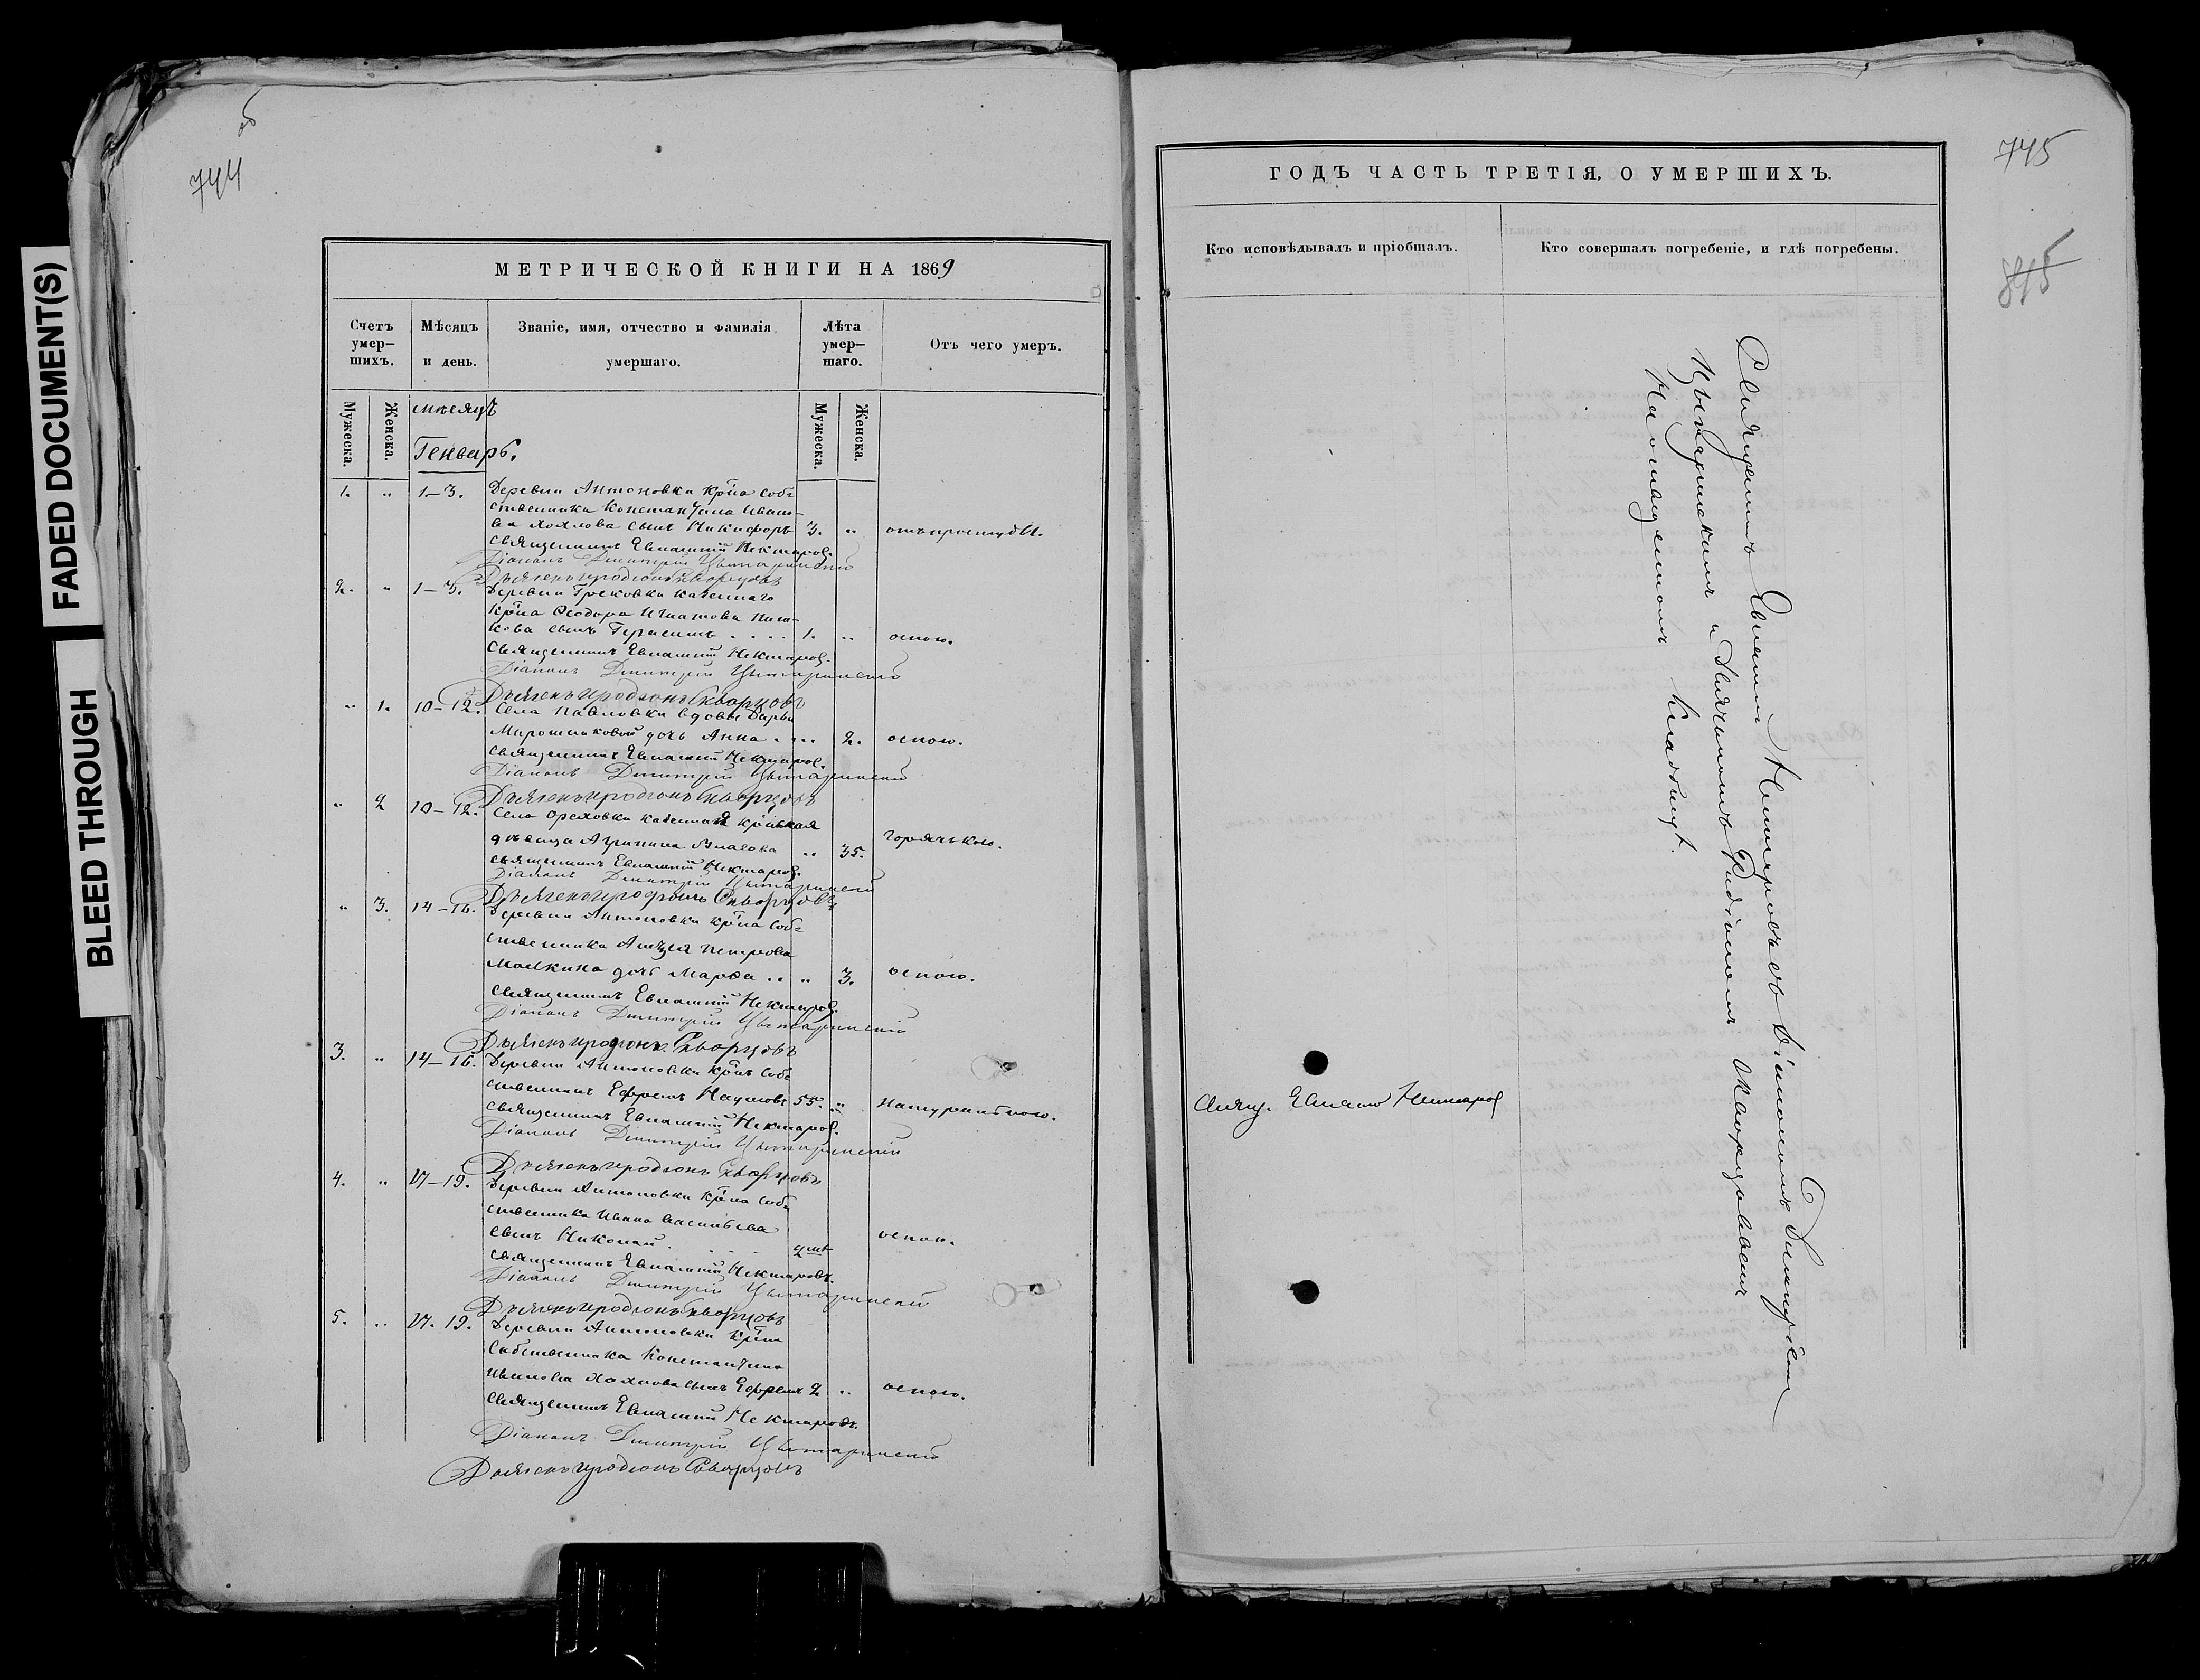 FADED DOCUMENT(S)
BLEED THROUGH
744
об
МЕТРИЧЕСКОЙ КНИГИ НА 1869
Счетъ умер-шихъ.
Мѣсяцъ и день.
Званіе, имя, отчество и фамилія умершаго.
Лѣта умер-шаго.
Отъ чего умеръ.
Мужеска.
Женска.
Мужеска.
Женска.
мѣсяцъ
Генварь.
1. „ 1–3. Деревни Антоновки крна соб-
ственника Константина Ивано-
ва Хохлова сынъ Никифоръ 3. „ отъ простуды.
Священникъ Евпатій Нектаров.
Діаконъ Димитрій Цытаринскій
Дьячекъ Иродіонъ Скворцовъ
2. „ 1–3. Деревни Грековки казеннаго
крна Ѳеодора Игнатова
кова сынъ Герасимъ . . . . 1. „ оспою.
Священникъ Евпатій Нектаров.
Діаконъ Димитрій Цытаринскій
Дьячекъ Иродіонъ Скворцовъ
„ 1. 10–12. Села Павловки вдовы Дарьи
Мирошниковой дочь Анна . . . . 2. оспою.
Священникъ Евпатій Нектаров.
Діаконъ Димитрій Цытаринскій
Дьячекъ Иродіонъ Скворцовъ
„ 2 10–12. Села Ореховки казенная крнская
дѣвица Агрипина Власова „ 35. горячькою.
Священникъ Евпатій Нектаров.
Діаконъ Димитрій Цытаринскій
Дьячекъ Иродіонъ Скворцовъ
„ 3. 14–16. Деревни Антоновки крна соб-
ственника Петрова
дочь Марѳа . . „ 3. оспою.
Священникъ Евпатій Нектаров.
Діаконъ Димитрій Цытаринскій
Дьячекъ Иродіонъ Скворцовъ
3. „ 14–16. Деревни Антоновки крнъ соб-
ственникъ Ефремъ Наумовъ 55. „ натуральною.
Священникъ Евпатій Нектаров.
Діаконъ Димитрій Цытаринскій
Дьячекъ Иродіонъ Скворцовъ
4. „ 17–19. Деревни Антоновки крна соб-
ственника Ивана Васильева
сынъ Николай . . . . оспою.
Священникъ Евпатій Нектаровъ.
Діаконъ Димитрій Цытаринскій
Дьячекъ Иродіонъ Скворцовъ
5. „ 17–19. Деревни Антоновки крна
собственника Константина
Иванова Хохлова сынъ Ефремъ 2 „ оспою.
Священникъ Евпатій Нектаровъ.
Діаконъ Димитрій Цытаринскій
Дьячекъ Иродіонъ Скворцовъ
745
815
ГОДЪ ЧАСТЬ ТРЕТІЯ, О УМЕРШИХЪ.
Кто исповѣдывалъ и пріобщалъ.
Кто совершалъ погребеніе, и гдѣ погребены.
Свящ. Евпатій Нектаров
Священникъ Евпатій Нектаровъ съ діакономъ Димитріемъ
Цытаринскимъ и дьячкомъ Скворцовымъ
На кладбищѣ.